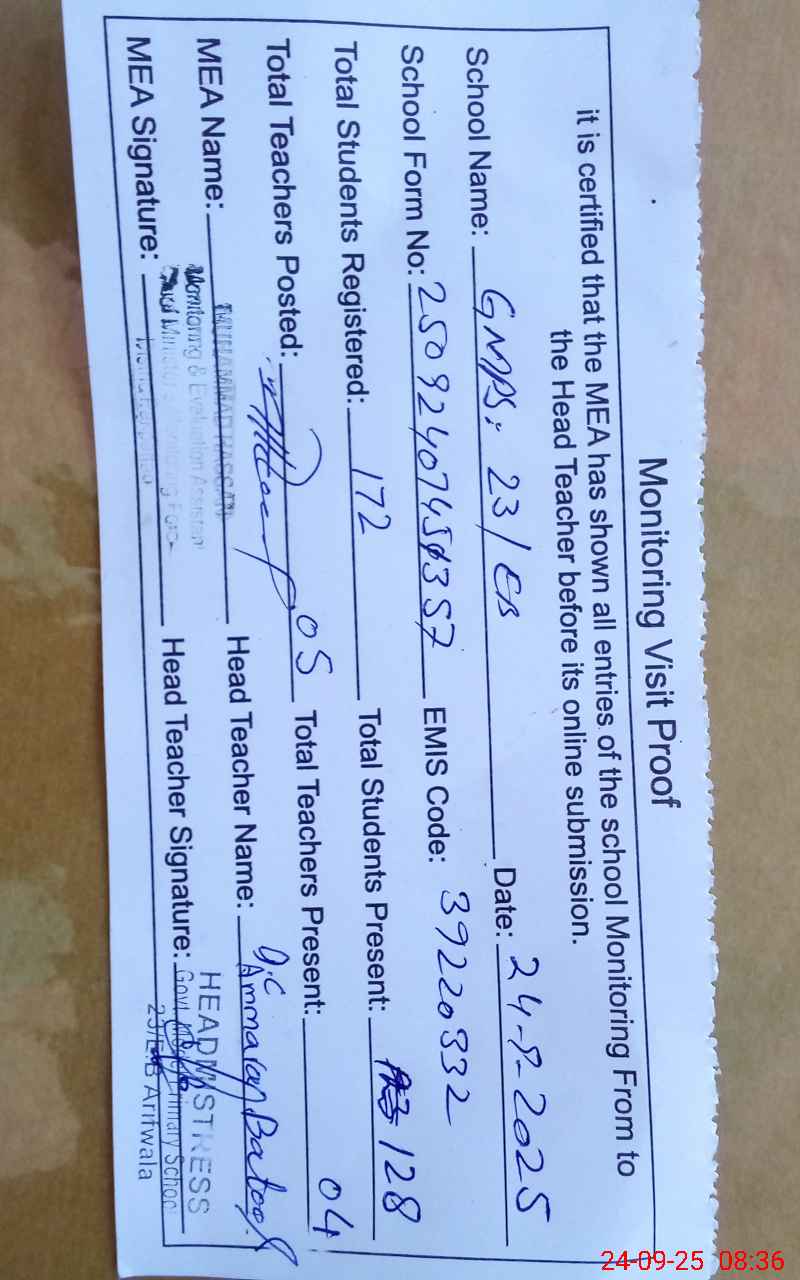 Monitoring Visit Proof
it is certified that the MEA has shown all entries of the school Monitoring From to
the Head Teacher before its online submission.
School Name: GMPS: 23/EB Date: 24-9-2025
School Form No: EMIS Code: 39220332
Total Students Registered: 172 Total Students Present: 128
Total Teachers Posted: 05 Total Teachers Present: 04
MEA Name: MUHAMMAD HASSAN Head Teacher Name: Batool
Monitoring & Evaluation Assistant
MEA Signature: Head Teacher Signature:
HEADMISTRESS
Govt. Primary School
23/EB Arifwala
24-09-25 08:36